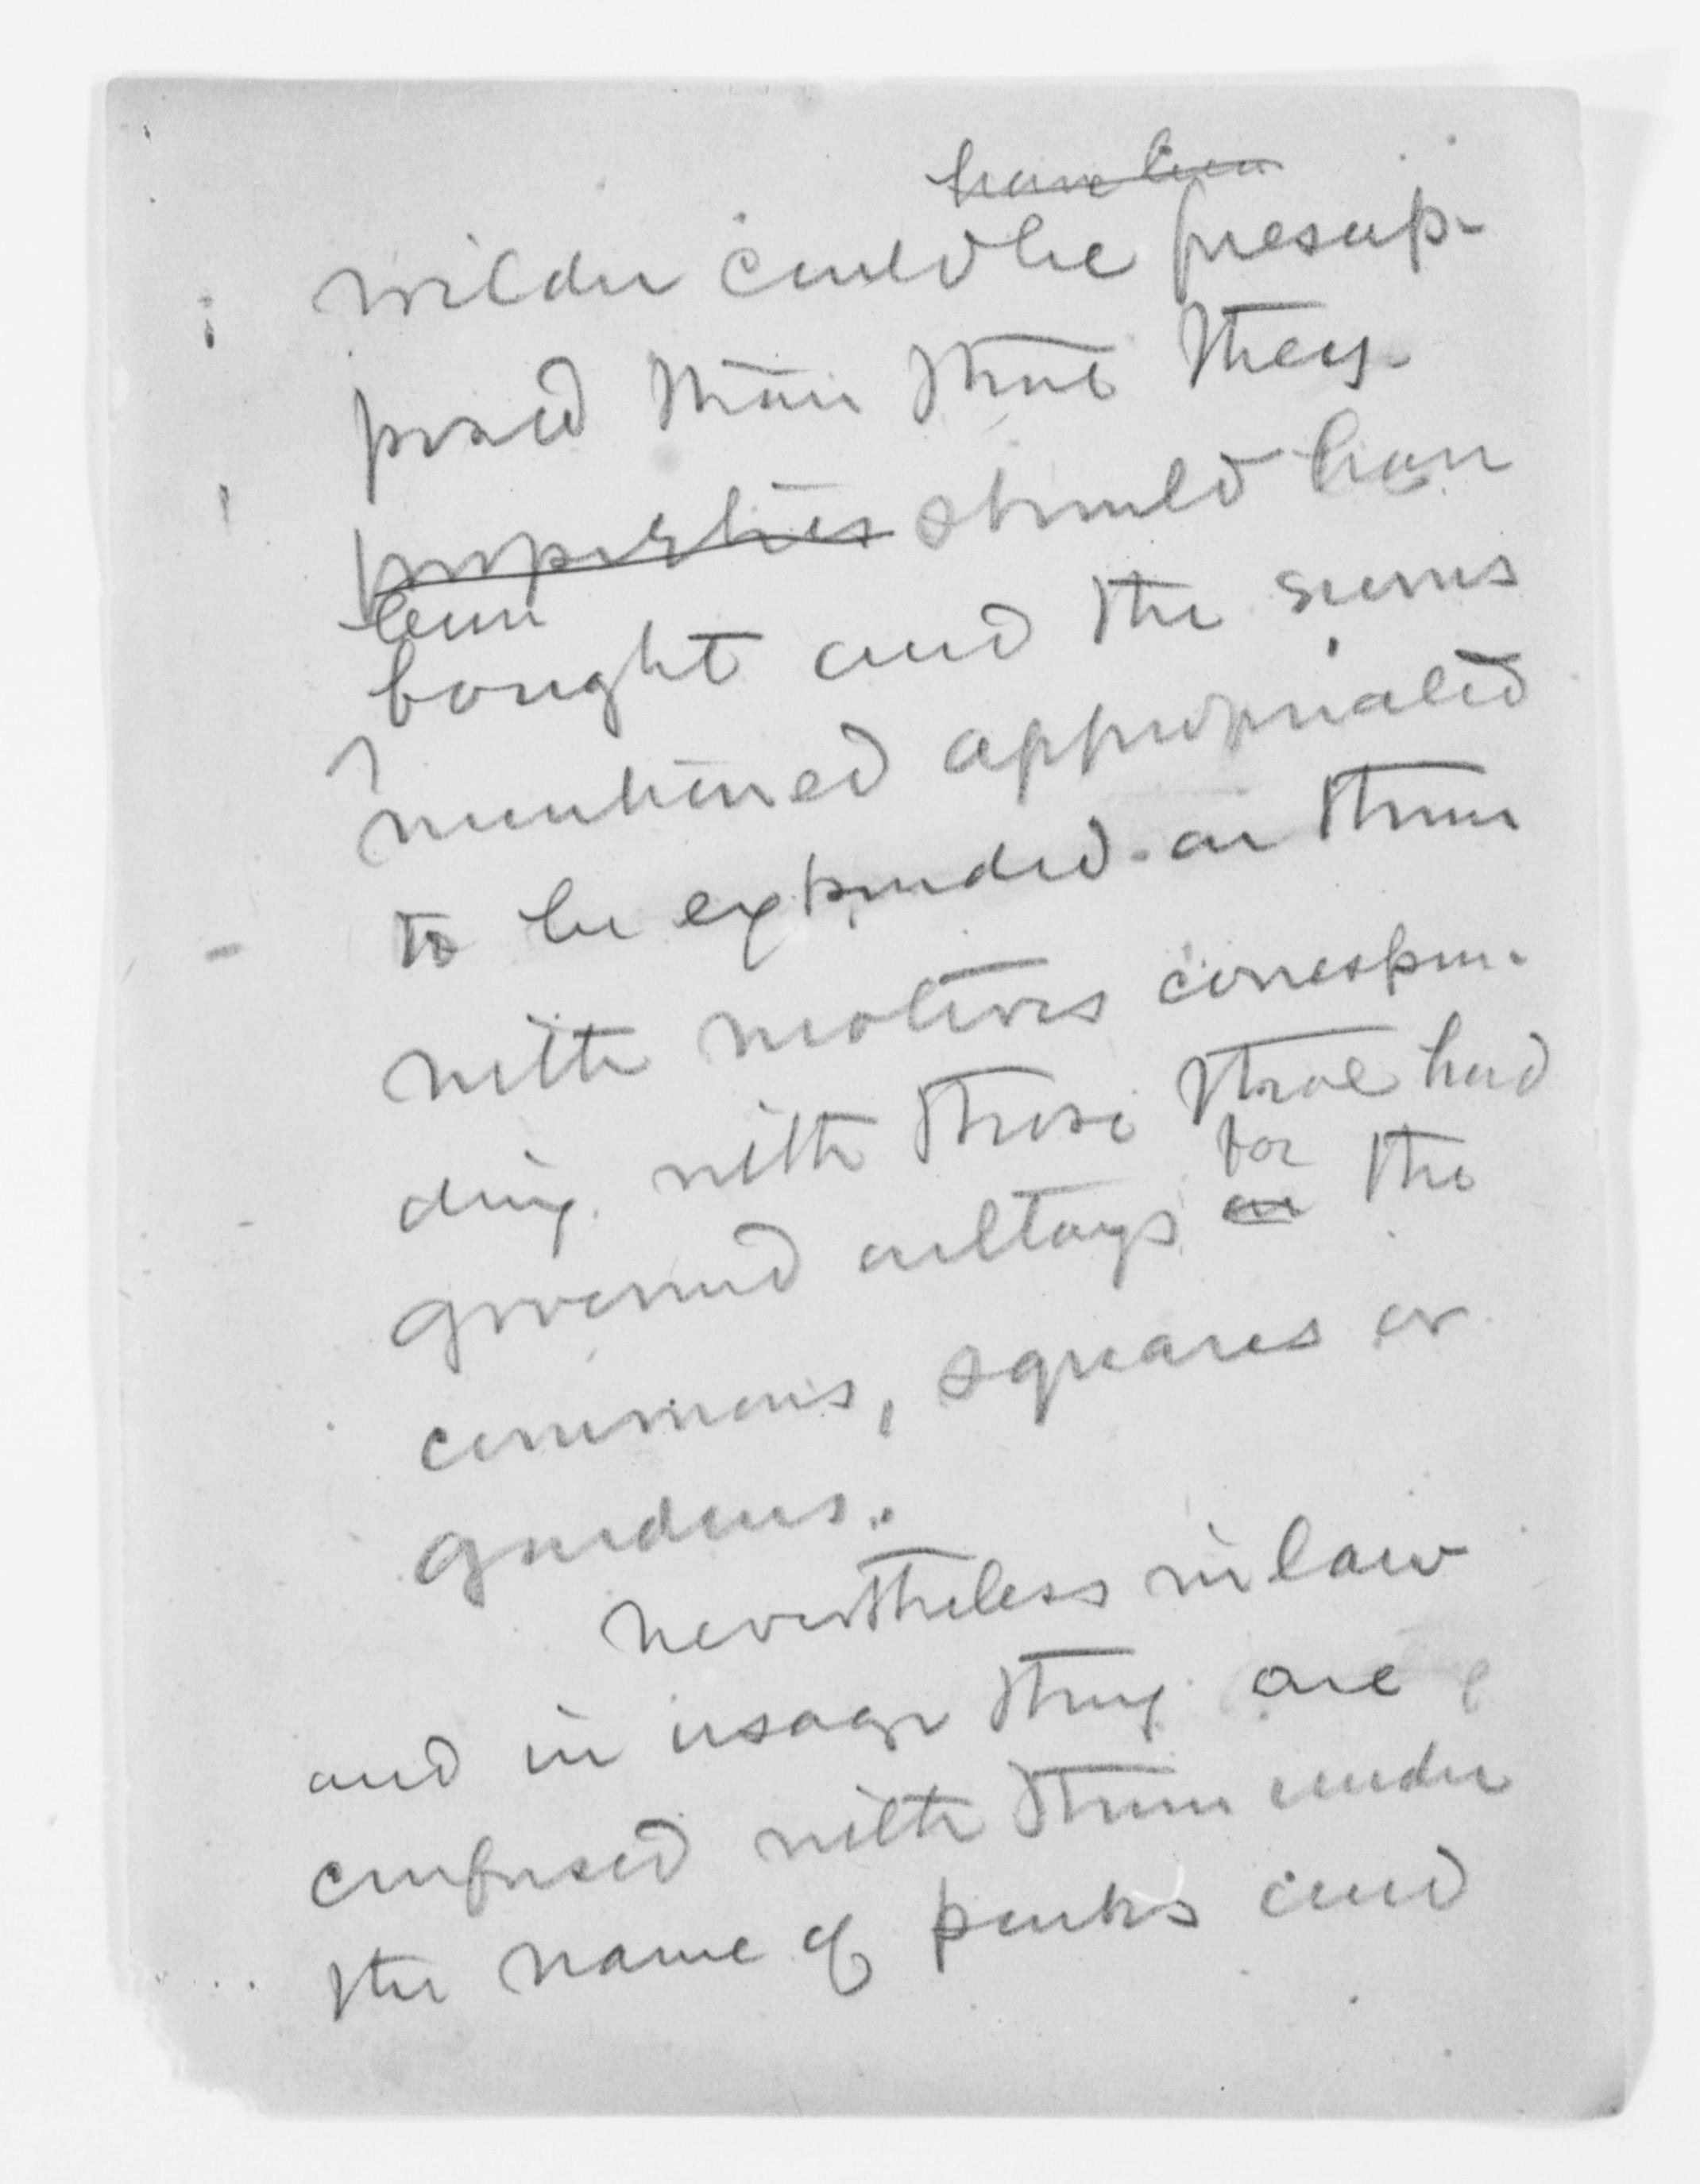 have been
wilder could be presup-
posed than that they
properties should have
been
bought and the sums
mentioned appropriated
to be expended on them
with motives correspon-
ding with those that had
governed outlays
for
on the
commons, squares or
gardens.
Nevertheless in law
and in usage they are
confused with them under
the name of parks and